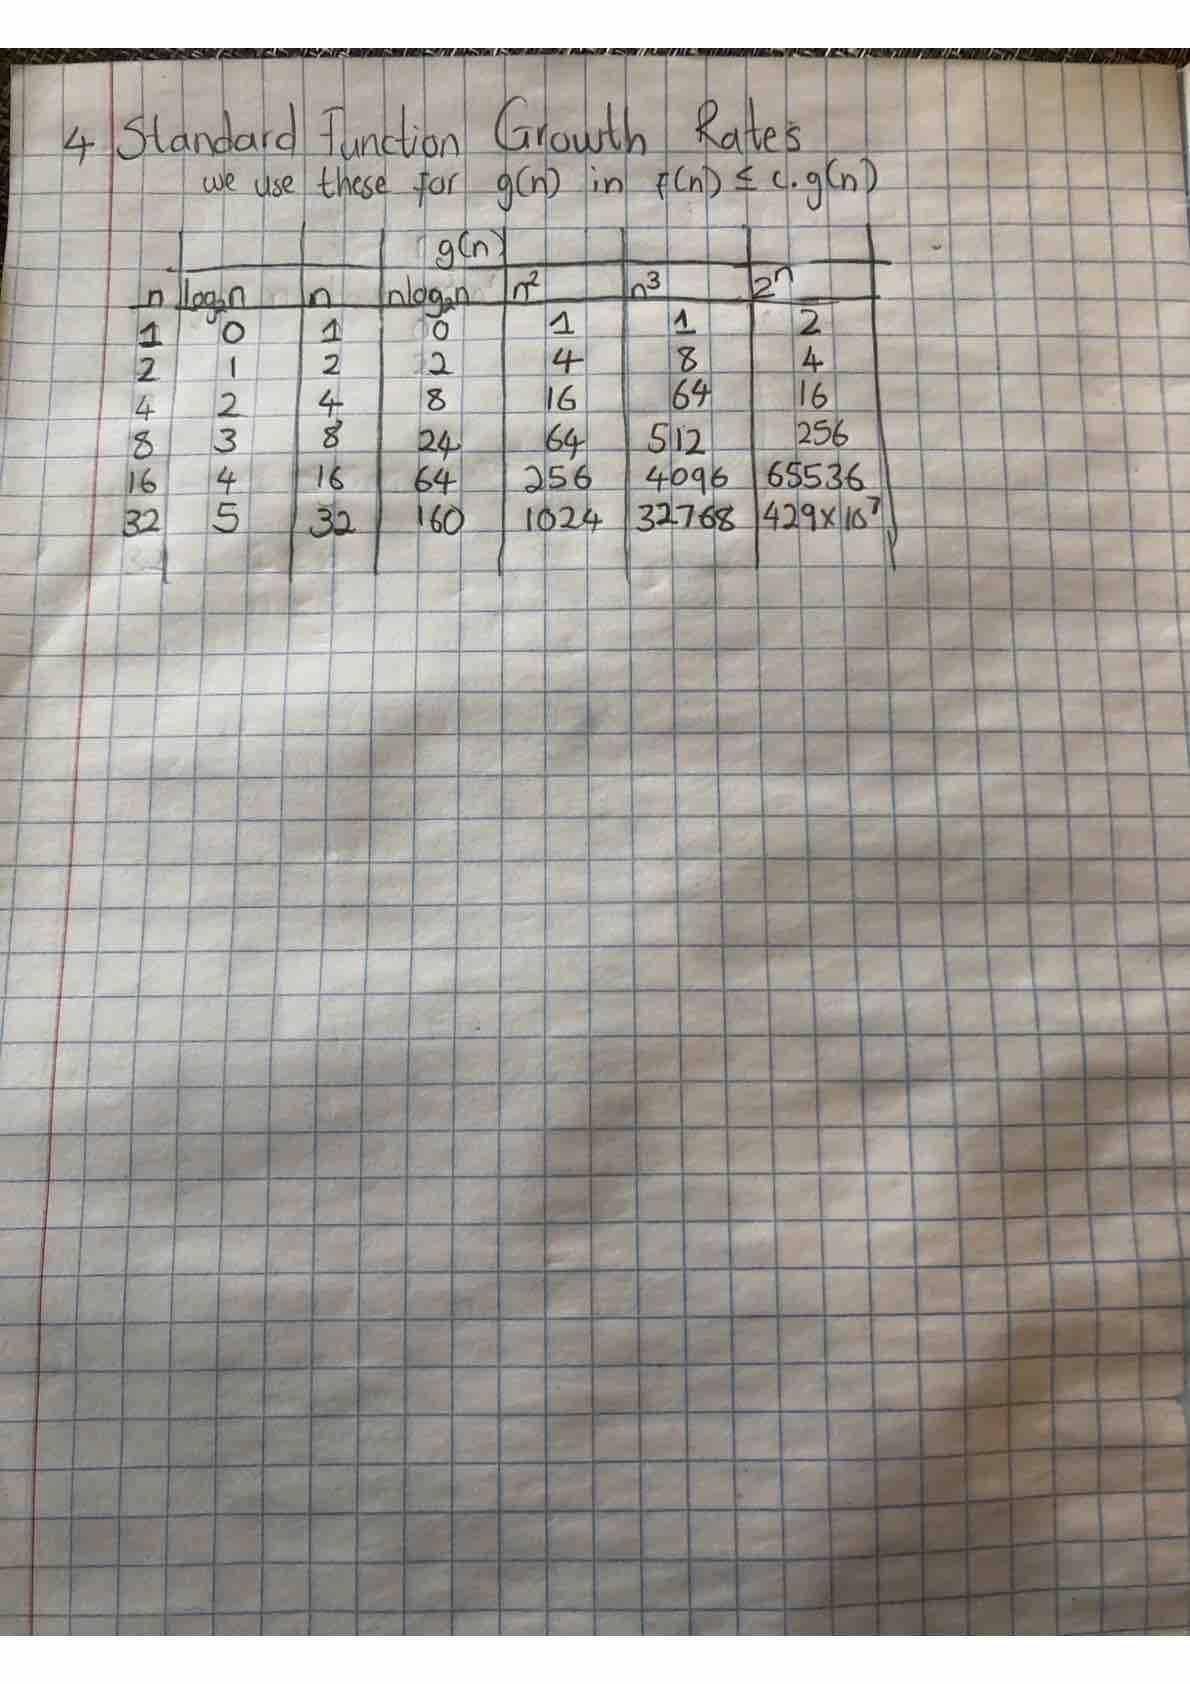 4 Standard Function Growth Rates
we use these for g(n) in f(n) ≤ c.g(n)
g(n)
n log₂n n nlog₂n n² n³ 2ⁿ
1 0 1 0 1 1 2
2 1 2 2 4 8 4
4 2 4 8 16 64 16
8 3 8 24 64 512 256
16 4 16 64 256 4096 65536
32 5 32 160 1024 32768 429x10⁷